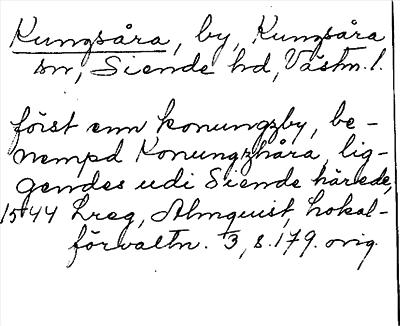 Kungsåra, by, Kungsåra
sn, Siende hd, Västm. l.
först enn konungzby, be-
nempd Konungzhåra, lig-
gendes udi Siende härede,
1544 Lreg, Almquist, Lokal-
förvaltn. 3, s. 179. orig.